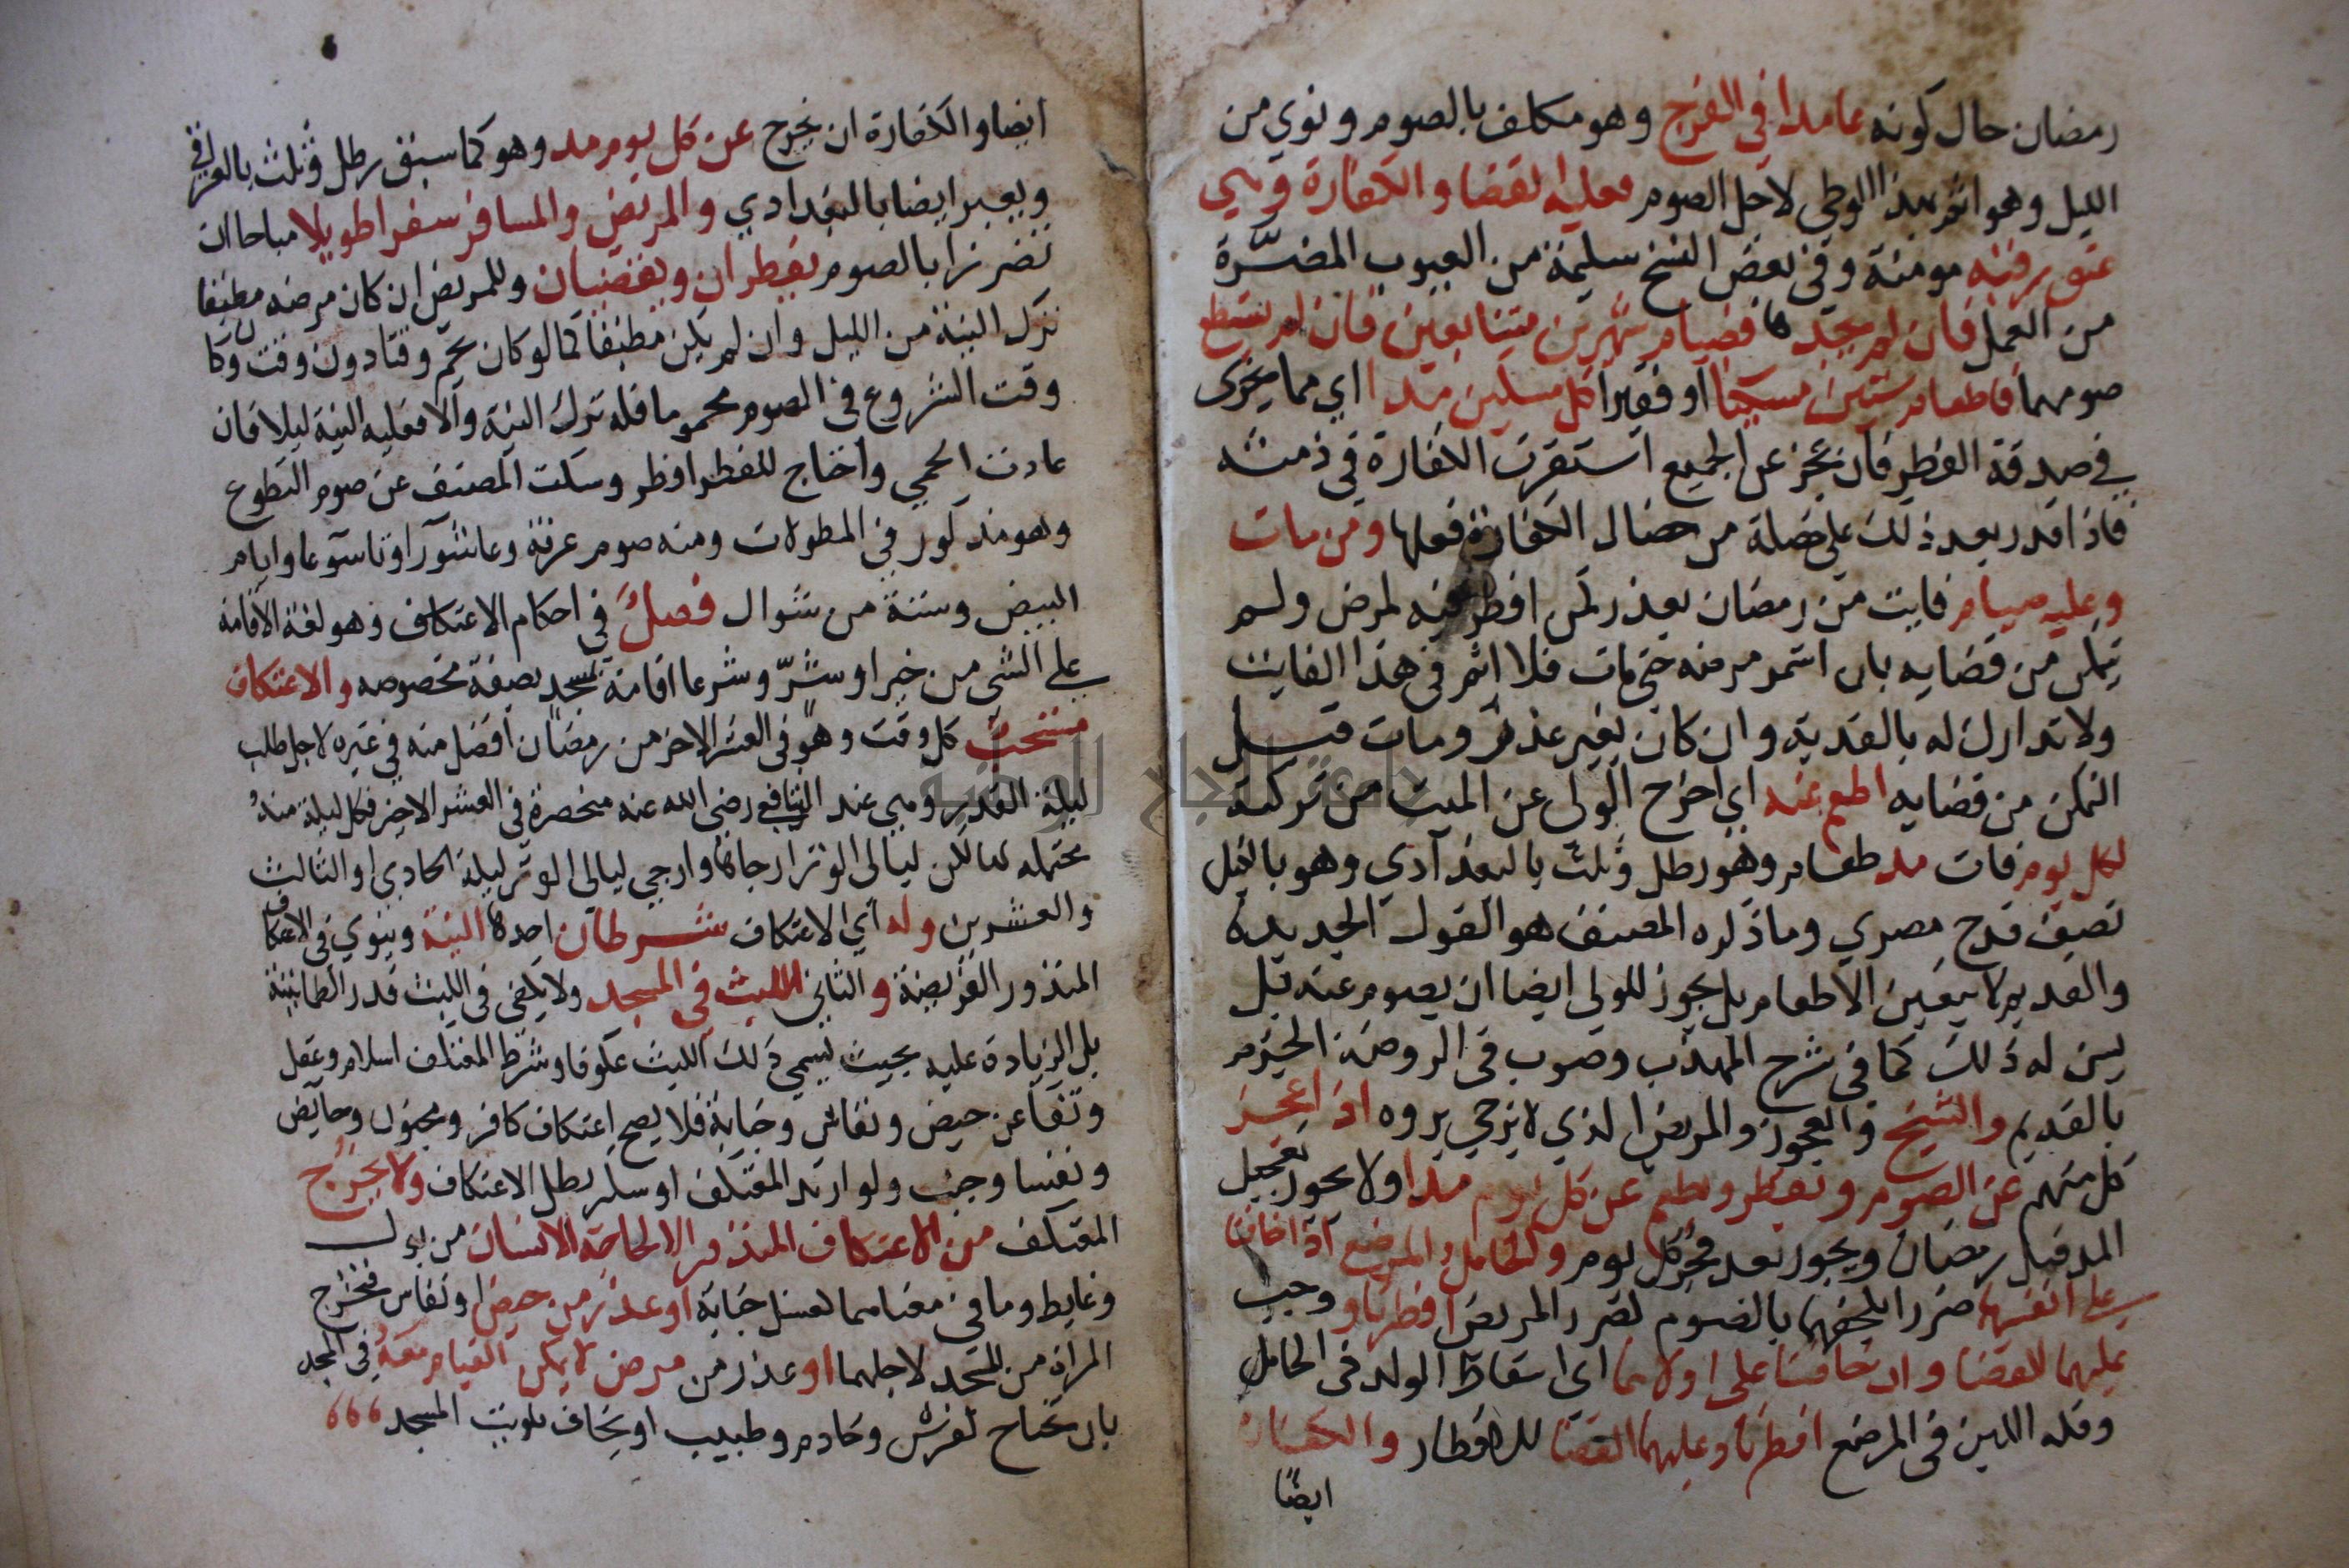 رمضان حال كونه عامدا في الفرج وهو مكلف بالصوم ونوي من
الليل وهو اثم بهذا الوطي لاجل الصوم فعليه القضا والكفارة وهي
عتق رقبة مومنة وفي بعض النسخ سليمة من العيوب المضرة
من العمل فان لم يجدها فصيام شهرين متتابعين فان لم يستطع
صومهما فاطعام ستين مسكينا او فقيرا كل مسكين مدا اي مما يجزي
في صدقة الفطر فان عجز عن الجميع استقرت الكفارة في ذمته
فاذا قدر بعد ذلك على خصلة من خصال الكفارة فعلها ومن مات
وعليه صيام فايت من رمضان بعذر كمن افطر فيه لمرض ولم
يتمكن من قضايه بان استمر مرضه حتى مات فلا اثم في هذا الفايت
ولا تدارك له بالفدية وان كان بغير عذر ومات قبل
التمكن من قضايه اطعم عنه اي اخرج الولي عن الميت من تركته
لكل يوم فات مد طعام وهو رطل وثلث بالبغدادي وهو بالكيل
نصف قدح مصري وما ذكره المصنف هو القول الجديد
والقديم لا يتعين الاطعام بل يجوز للولي ايضا ان يصوم عنه بل
يسن له ذلك كما في شرح المهذب وصوب في الروضة الجزم
بالقديم والشيخ والعجوز والمريض الذي لا يرجي بروه اذا عجز
كل منهم عن الصوم ويفطر ويطعم عن كل يوم مدا ولا يجوز تعجيل
المد قبل رمضان ويجوز بعد فجر كل يوم والحامل والمرضع اذا خافتا
على انفسهما ضررا يلحقهما بالصوم كضرر المريض افطرتا ووجب
عليهما القضا وان خافتا على اولادهما اي اسقاط الولد في الحامل
وقلة اللبن في المرضع افطرتا وعليهما القضا للافطار والكفارة
ايضا
ايضا والكفارة ان يخرج عن كل يوم مد وهو كما سبق رطل وثلث بالعراقي
ويعبر ايضا بالبغدادي والمريض والمسافر سفرا طويلا مباحا ان
تضررا بالصوم يفطران ويقضيان وللمريض ان كان مرضه مطبقا
ترك النية من الليل وان لم يكن مطبقا كما لو كان يحم وقتا دون وقت وكان
وقت الشروع في الصوم محموما فله ترك النية والا فعليه النية ليلا فان
عادت الحمي واحتاج للفطر افطر وسكت المصنف عن صوم التطوع
وهو مذكور في المطولات ومنه صوم عرفة وعاشورا وتاسوعا وايام
البيض وستة من شوال فصل في احكام الاعتكاف وهو لغة الاقامة
على الشي من خير او شر وشرعا اقامة بمسجد بصفة مخصوصه والاعتكاف
مستحب كل وقت وهو في العشر الاخر من رمضان افضل منه في غيره لاجل طلب
ليلة القدر وهي عند الشافعي رضي الله عنه منحصرة في العشر الاخير فكل ليلة منه
محتمله لها لكن ليالي الوتر ارجاها وارجي ليالي الوتر ليلة الحادي او الثالث
والعشرين وله اي الاعتكاف شرطان احدها النية وينوي في الاعتكاف
المنذور الفريضة والثاني اللبث في المسجد ولا يكفي في اللبث قدر الطمانينة
بل الزيادة عليه بحيث يسمي ذلك اللبث عكوفا وشرط المعتكف اسلام وعقل
ونقا عن حيض ونفاس وجنابة فلا يصح اعتكاف كافر ومجنون وحايض
ونفسا وجنب ولو ارتد المعتكف او سكر بطل الاعتكاف ولا يخرج
المعتكف من الاعتكاف المنذور الا لحاجة الانسان من بول
وغايط وما في معناهما كغسل جنابة او عذر من حيض او نفاس فتخرج
المراة من المسجد لاجلهما او عذر من مرض لا يمكن القيام معه في المسجد
بان تحتاج لفرش وخادم وطبيب او يخاف تلويث المسجد
جامعة النجاح الوطنية